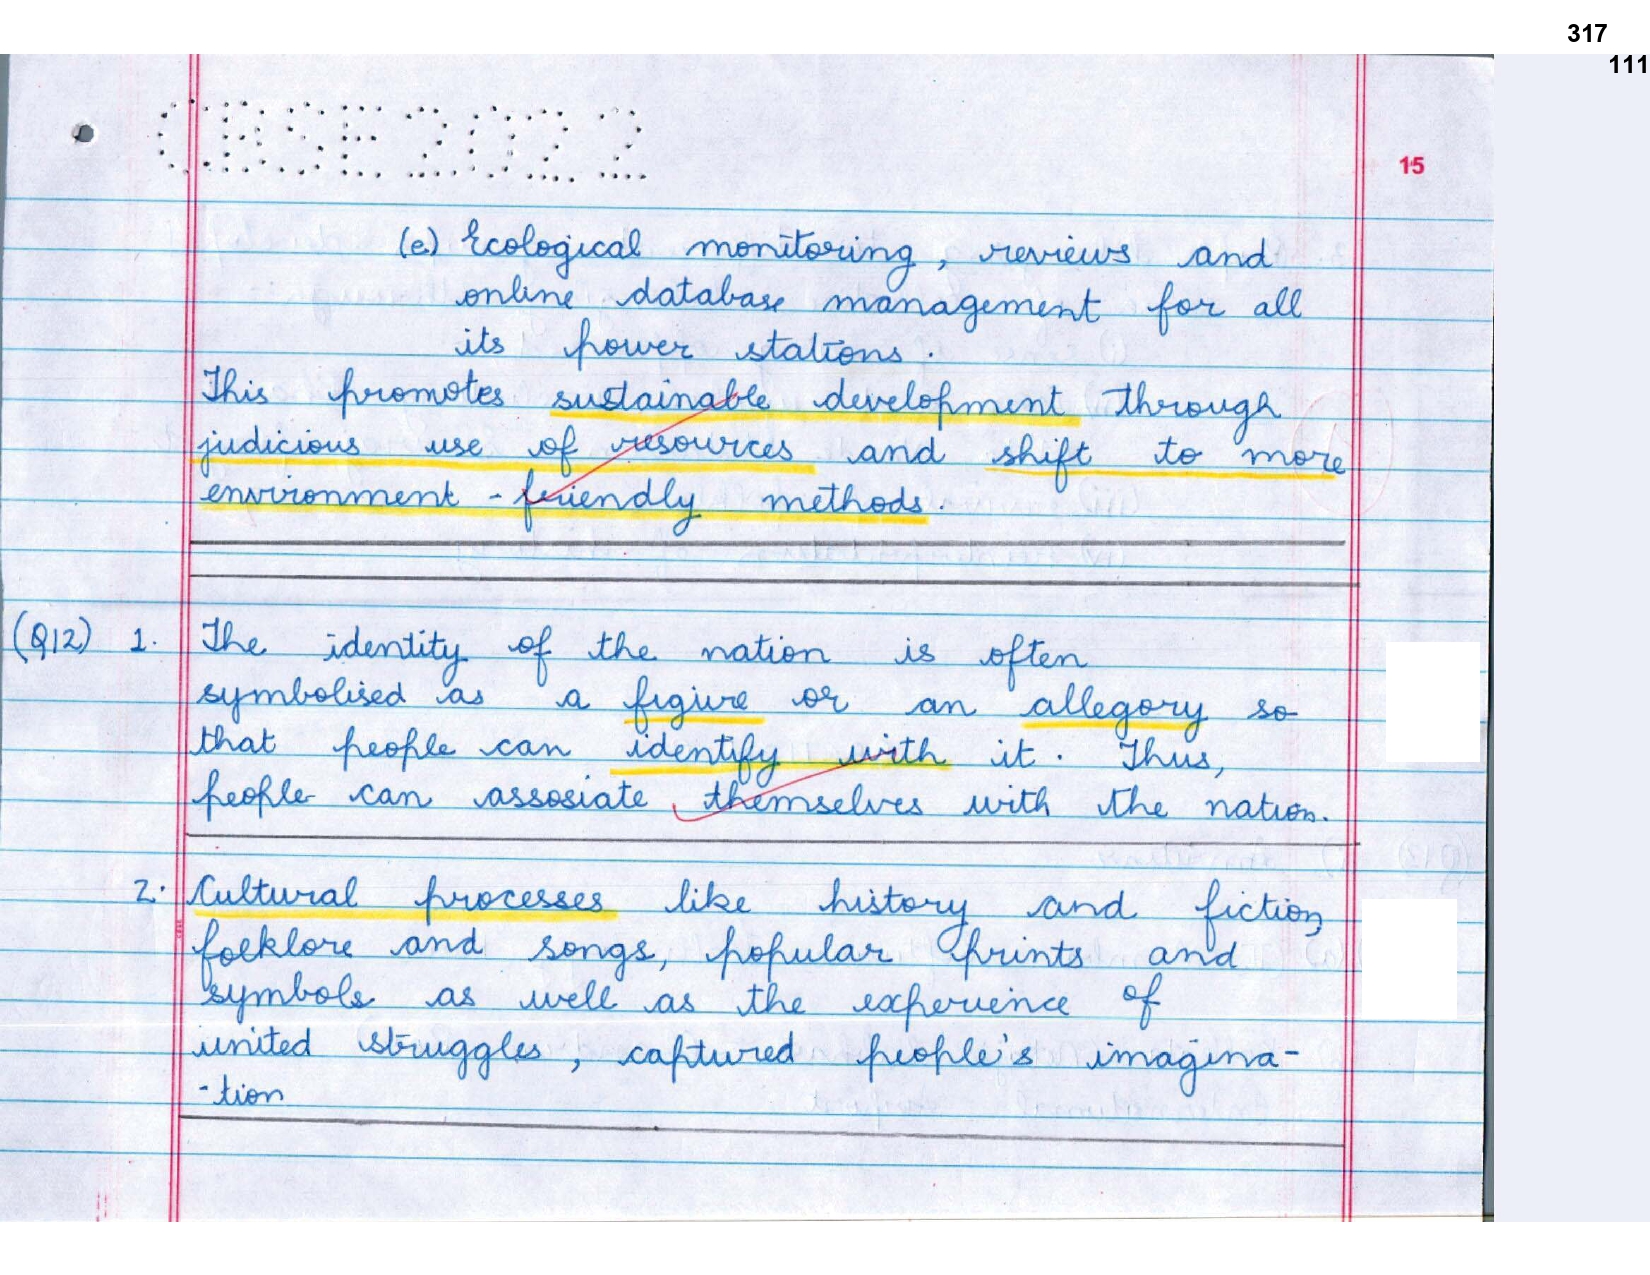 317
111
CBSE 2022
15
(e) Ecological monitoring, reviews and
online database management for all
its power stations.
This promotes sustainable development through
judicious use of resources and shift to more
environment - friendly methods.
(Q12) 1. The identity of the nation is often
symbolised as a figure or an allegory so
that people can identify with it. Thus,
people can assosiate themselves with the nation.
2. Cultural processes like history and fiction,
folklore and songs, popular prints and
symbols as well as the experience of
united struggles, captured people's imagina-
-tion